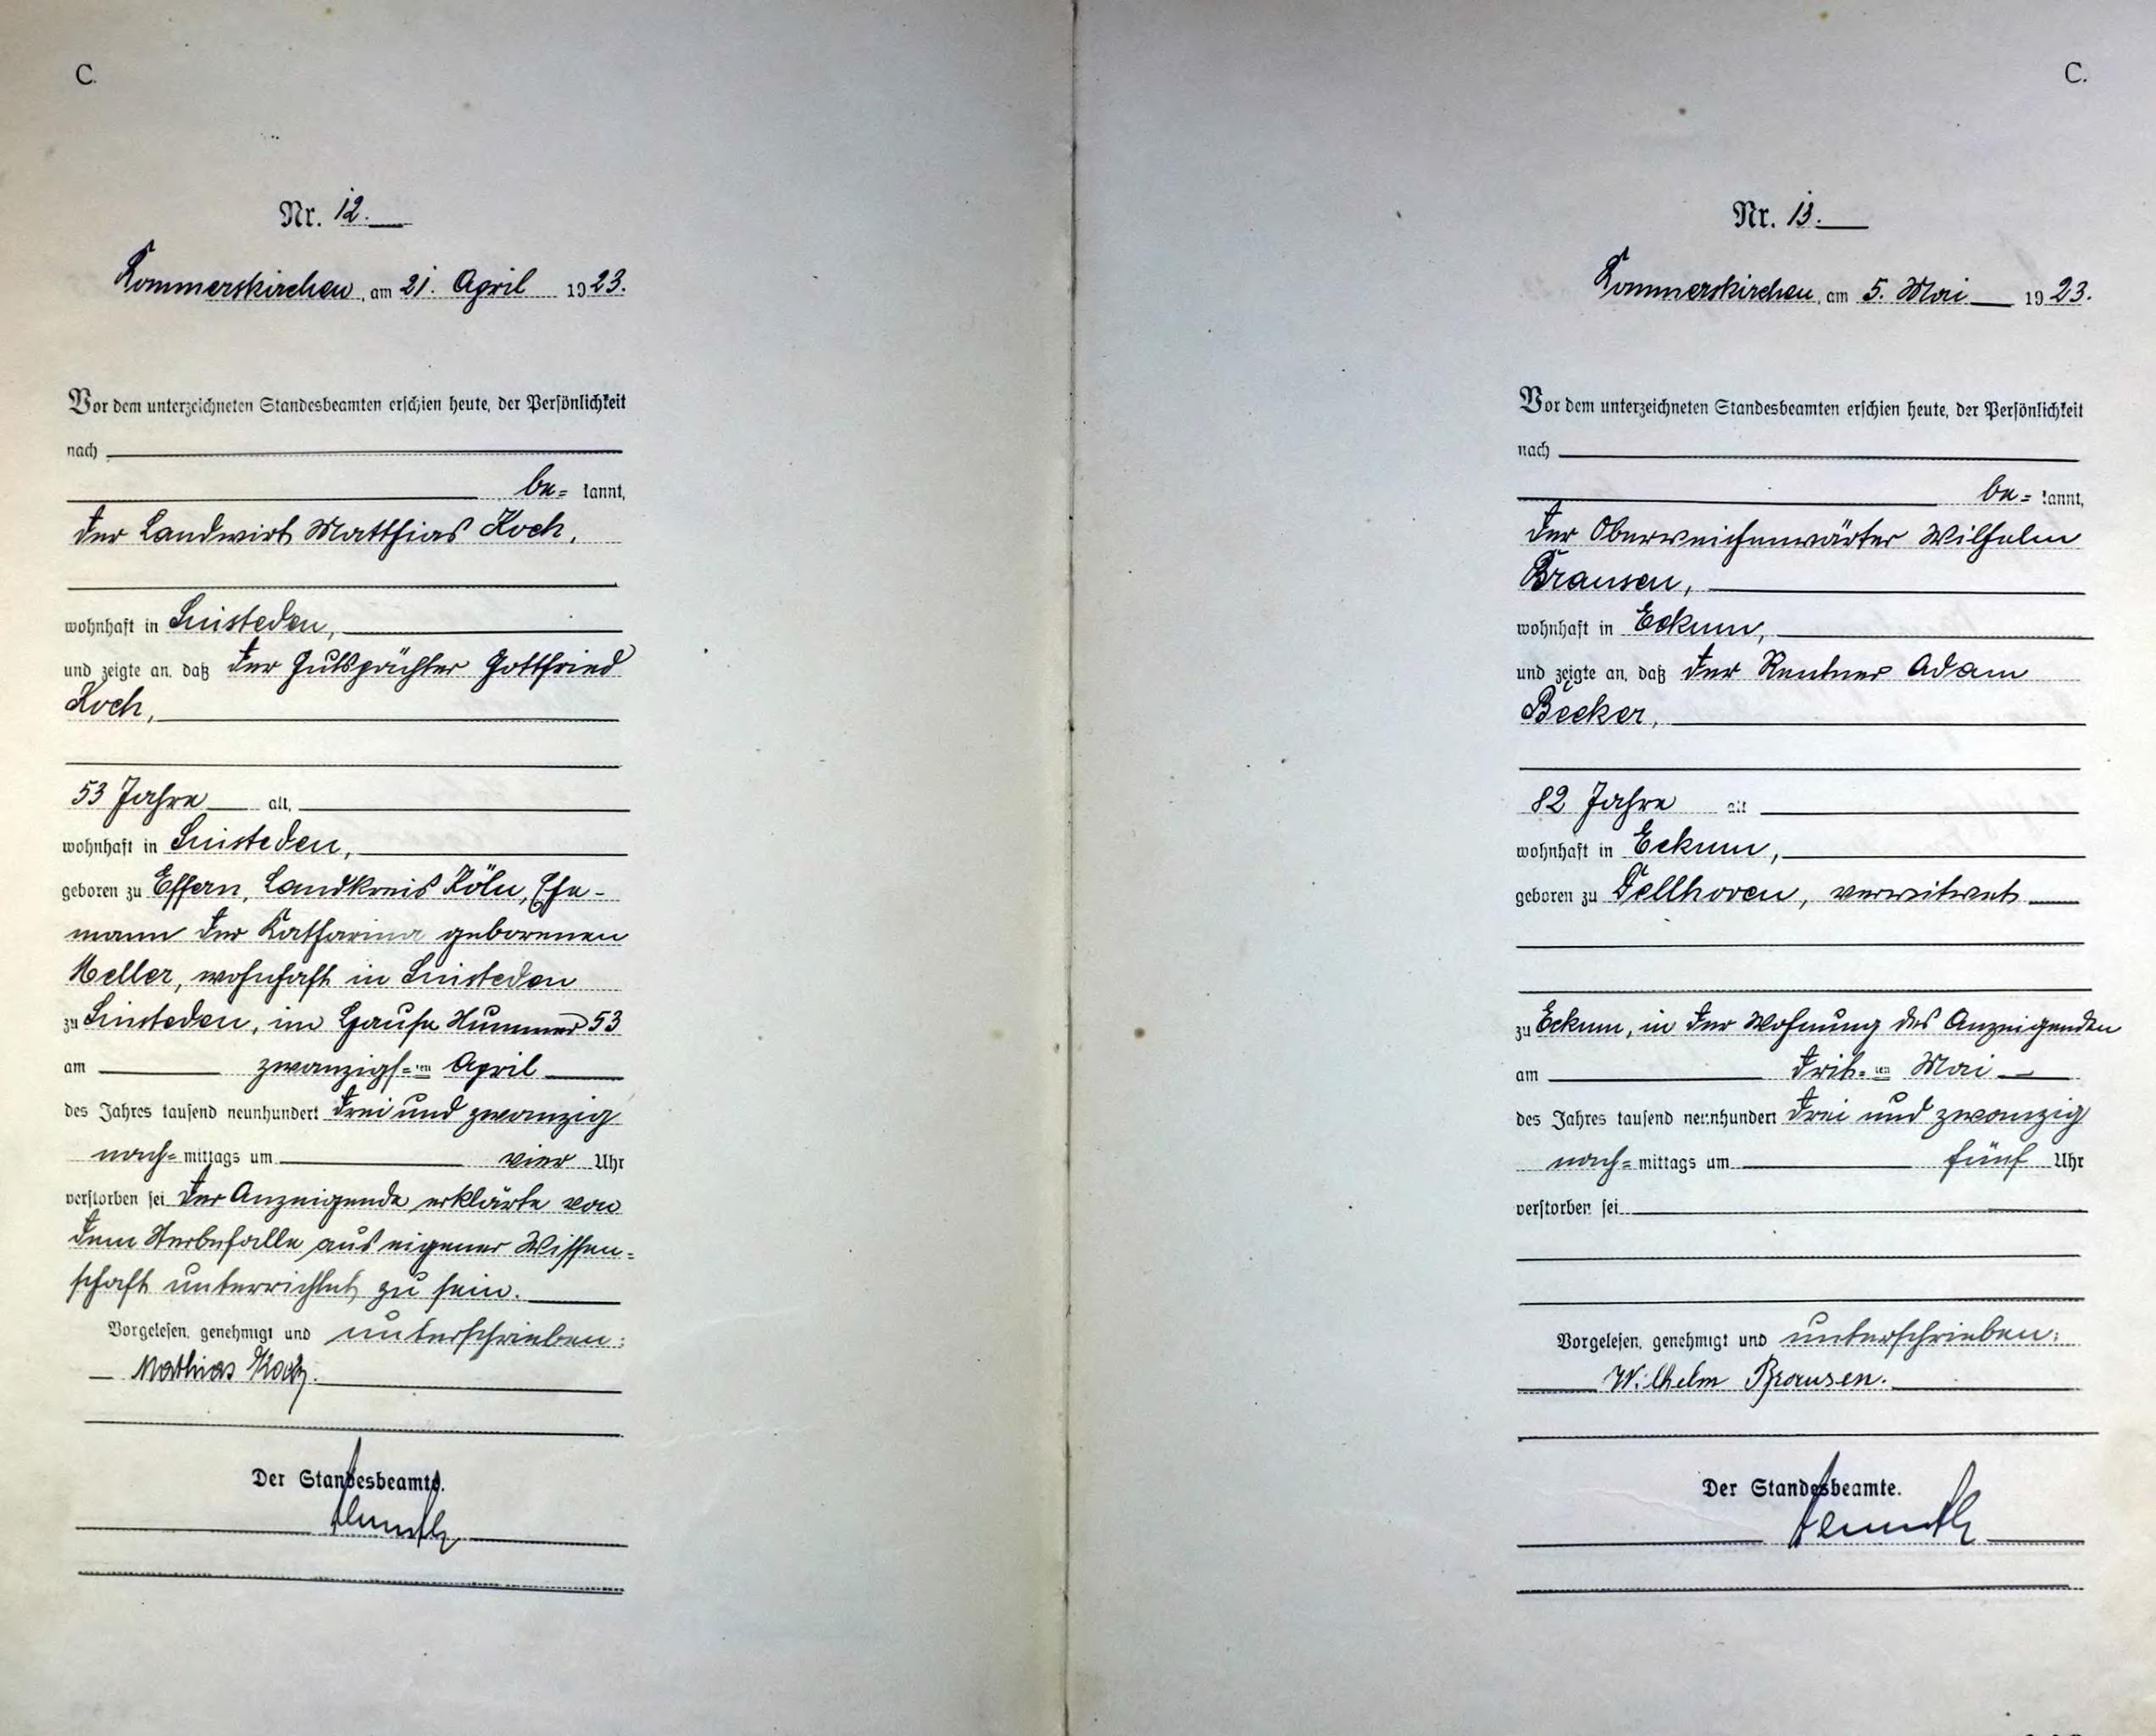 C.
Nr. 12.
Rommerskirchen, am 21. April 1923.
Vor dem unterzeichneten Standesbeamten erschien heute, der Persönlichkeit
nach
be= kannt,
der Landwirt Matthias Koch,
wohnhaft in Sinsteden,
und zeigte an, daß der Gutspächter Gottfried
Koch,
53 Jahre alt,
wohnhaft in Sinsteden,
geboren zu Effern, Landkreis Köln, Ehe-
mann der Katharina geborenen
Meller, wohnhaft in Sinsteden
zu Sinsteden, im Hause Nummer 53
am zwanzigs=ten April
des Jahres tausend neunhundert drei und zwanzig
nach= mittags um vier Uhr
verstorben sei der Anzeigende erklärte von
dem Sterbefalle aus eigener Wissen=
schaft unterrichtet zu sein.
Vorgelesen, genehmigt und unterschrieben:
Mathias Koch.
Der Standesbeamte.
C.
Nr. 13.
Rommerskirchen, am 5. Mai 1923.
Vor dem unterzeichneten Standesbeamten erschien heute, der Persönlichkeit
nach
be= kannt,
der Oberweichenwärter Wilhelm
Brausen,
wohnhaft in Eckum,
und zeigte an, daß der Rentner Adam
Becker,
82 Jahre alt
wohnhaft in Eckum,
geboren zu Dellhoven, verwitwet
zu Eckum, in der Wohnung des Anzeigenden
am drit=ten Mai
des Jahres tausend neunhundert drei und zwanzig
nach= mittags um fünf Uhr
verstorben sei
Vorgelesen, genehmigt und unterschrieben:
Wilhelm Brausen.
Der Standesbeamte.